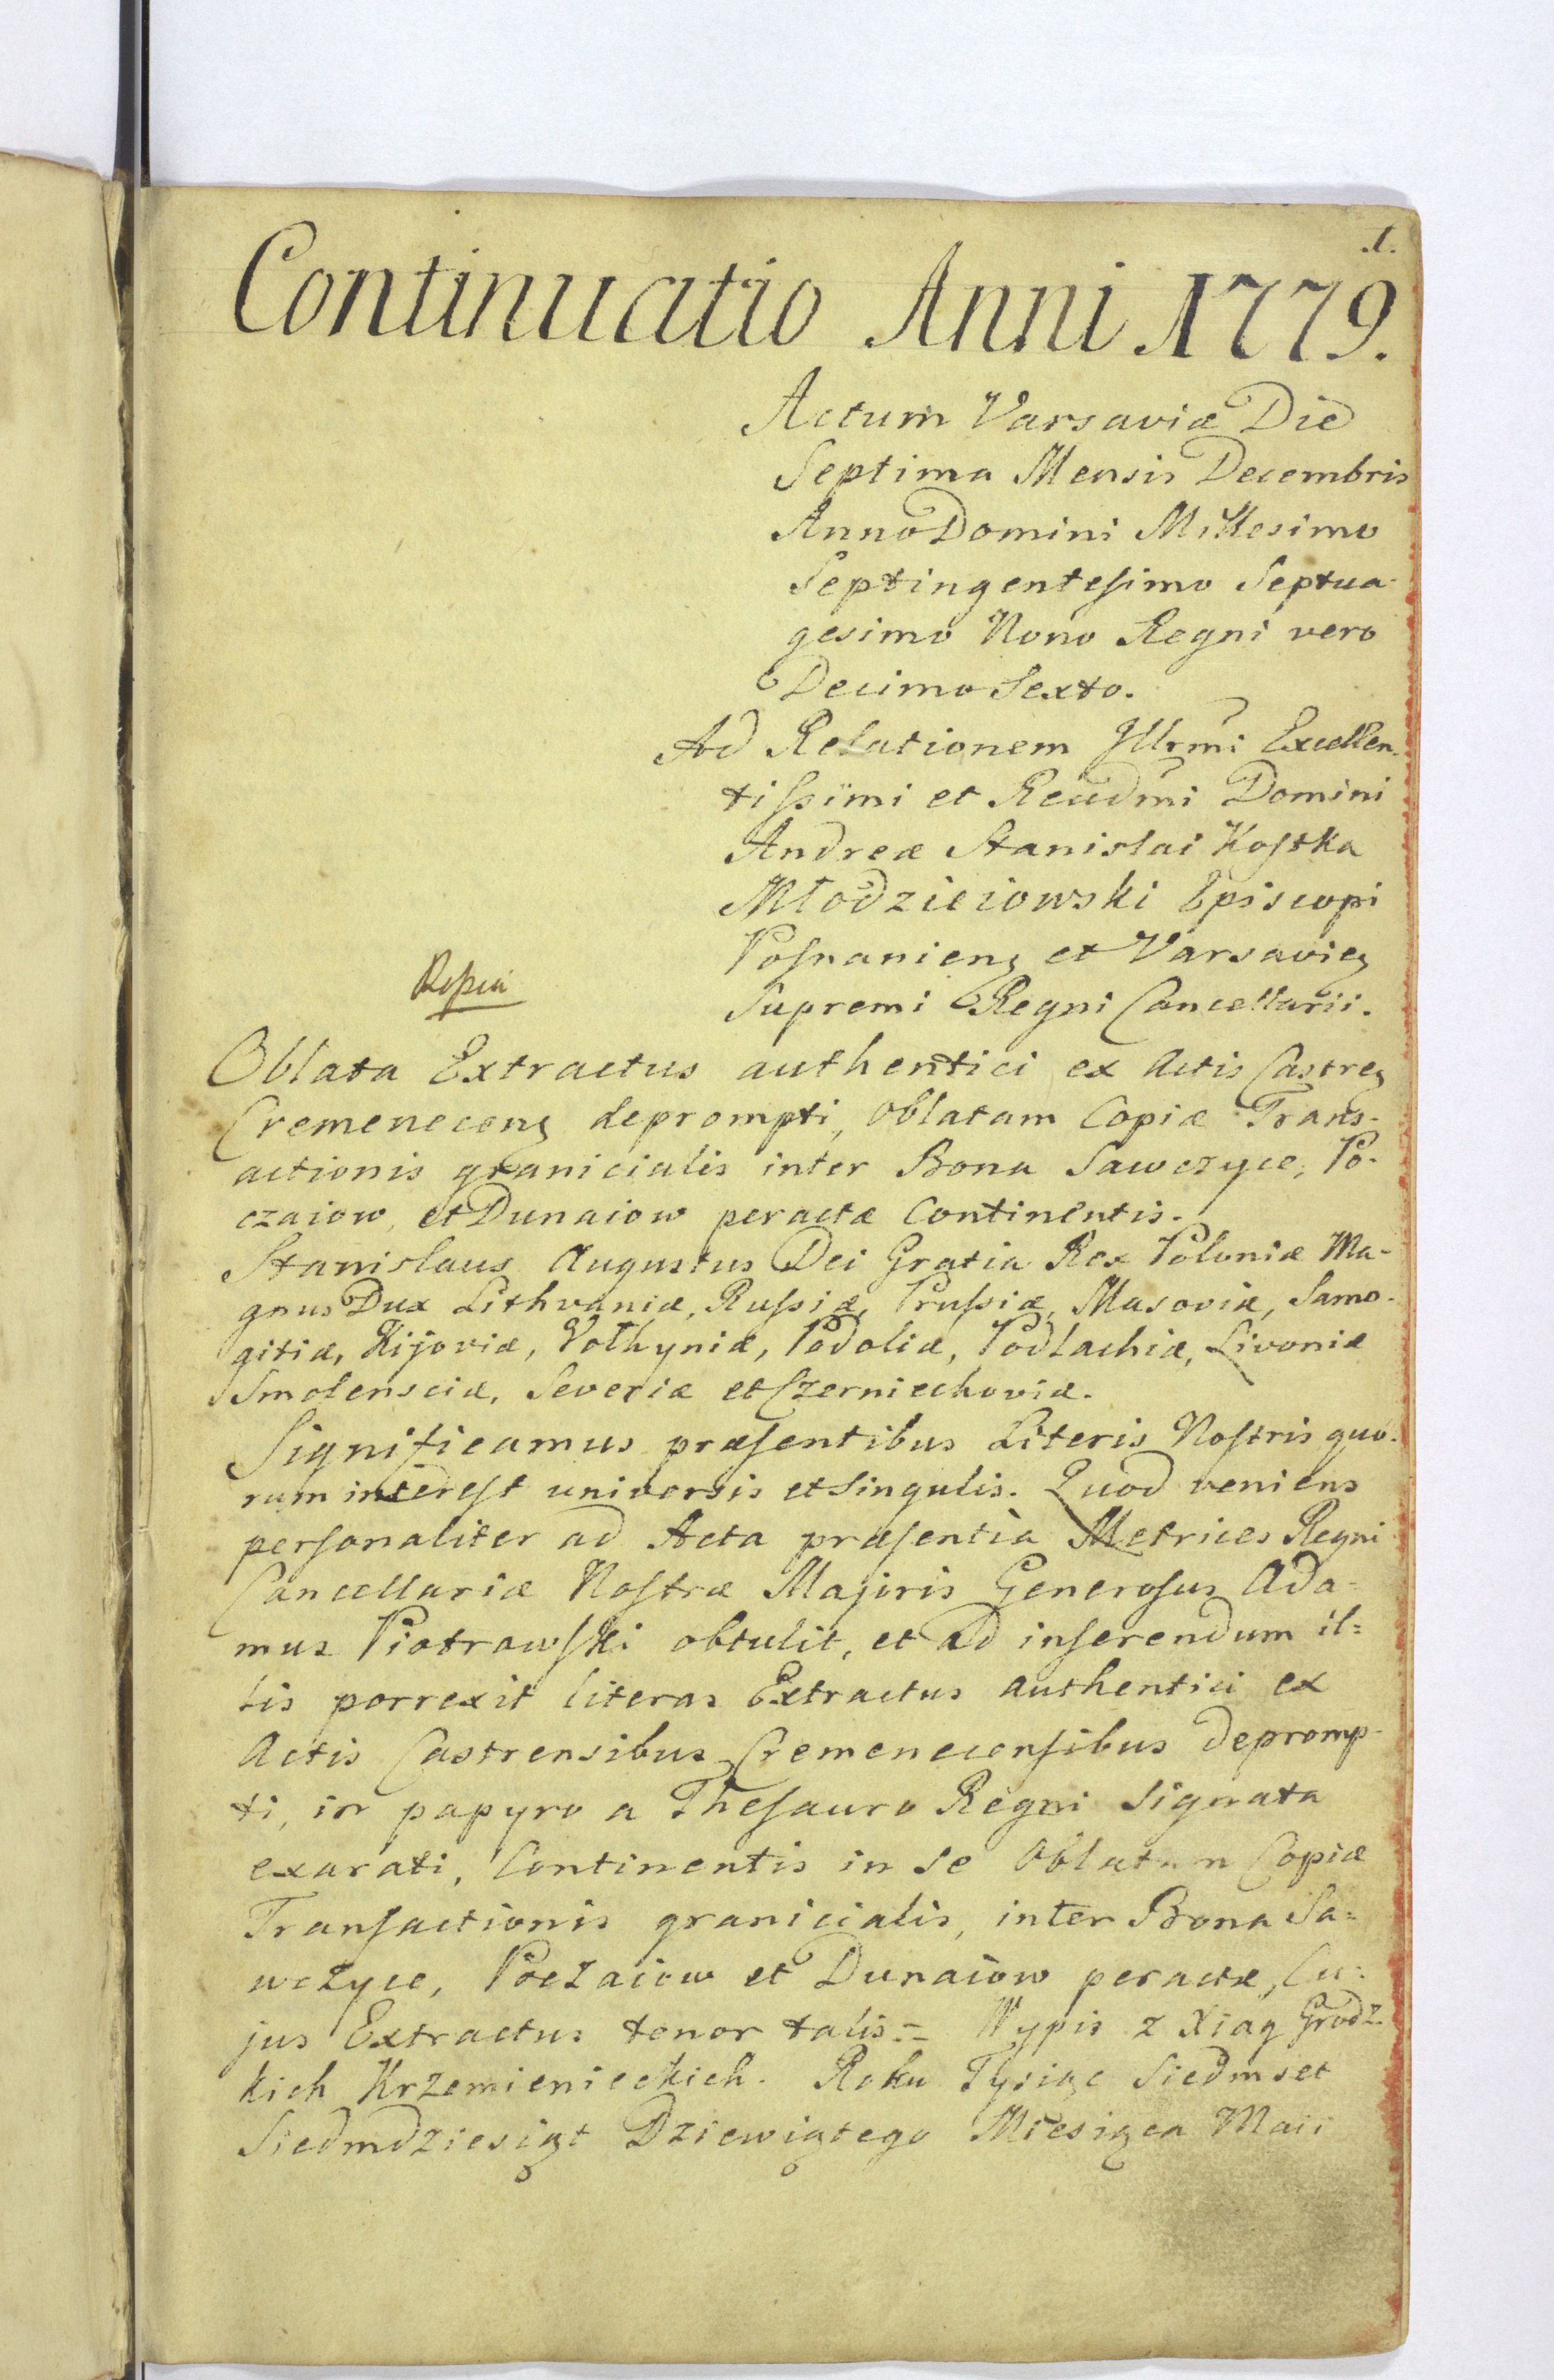 .1.
Continuatio Anni 1779.
Actum Varsaviæ Die
Septima Mensis Decembris
Anno Domini Millesimo
Septingentesimo Septua-
gesimo Nono Regni vero
Decimo Sexto.
Ad Relationem Illrmi Excellen-
tissimi et Reudmi Domini
Andreæ Stanislai Kostka
Młodzieiowski Episcopi
Posnanieng et Varsavieg
Supremi Regni Cancellarii.
Oblata Extractus authentici ex Actis Castreg
Cremeneceng deprompti, Oblatam Copiæ Trans-
actionis granicialis inter Bona Sawczyce, Po-
czaiow, et Dunaiow peractæ Continentis.
Stanislaus Augustus Dei Gratia Rex Poloniæ Ma-
gnus Dux Lithvaniæ, Russiæ, Prussiæ, Masoviæ, Samo-
gitiæ, Kijoviæ, Volhyniæ, Podoliæ, Podlachiæ, Livoniæ
Smolensciæ, Severiæ et Czerniechoviæ.
Significamus præsentibus Literis Nostris quo-
rum interest universis et singulis. Quod veniens
personaliter ad Acta præsentia Metrices Regni
Cancellariæ Nostræ Majoris Generosus Ada=
mus Piotrowski obtulit, et ad inserendum il=
lis porrexit literas Extractus authentici ex
Actis Castrensibus Cremenecensibus depromp-
ti, in papyro a Thesauro Regni Signata
exarati, Continentis in se Oblatam Copiæ
Transactionis granicialis, inter Bona Sa=
wczyce, Poczaiow et Dunaiow peractæ, Cu=
jus Extractus tenor talis = Wypis z Xiąg Grodz-
kich Krzemienieckich. Roku Tysiąc Siedmset
Siedmdziesiąt Dziewiątego Miesiąca Maii